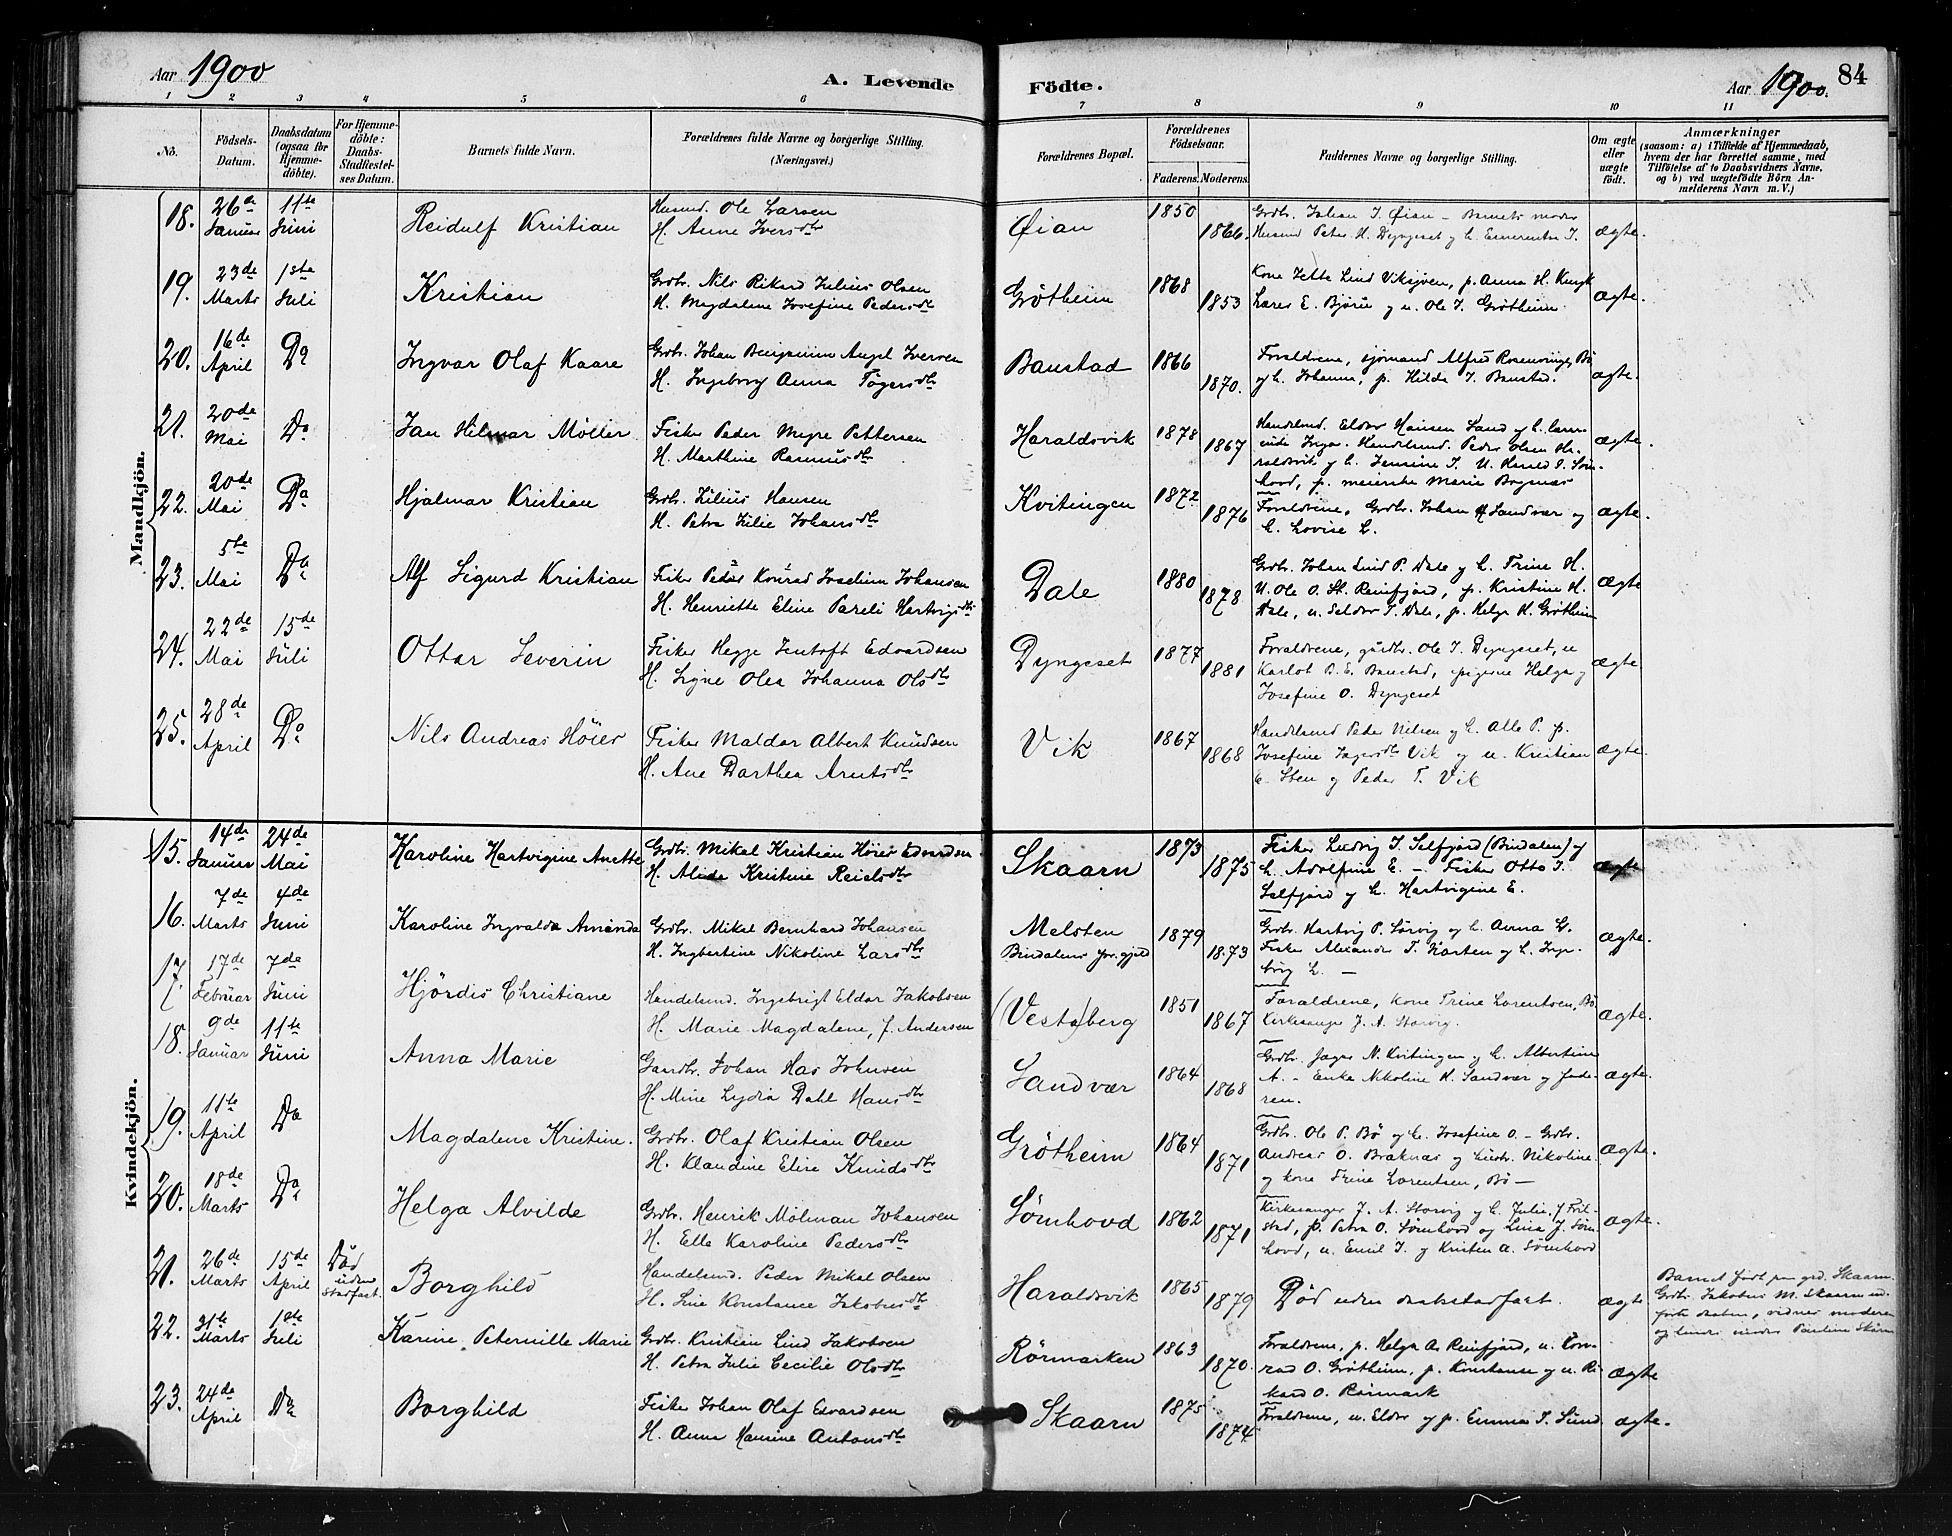 Aar 1900
A. Levende Födte.
Aar 1900. 84
1 2 3 4 5 6 7 8 9 10 11
No.
Födsels-Datum.
Daabsdatum (ogsaa for Hjemme-döbte).
For Hjemme-döbte: Daabs-Stadfæstel-ses Datum.
Barnets fulde Navn.
Forældrenes fulde Navne og borgerlige Stilling. (Næringsvei.)
Forældrenes Bopæl.
Forældrenes Födselsaar.
Faderens. Moderens.
Faddernes Navne og borgerlige Stilling.
Om ægte eller uægte født.
Anmærkninger
(saasom: a) i Tilfælde af Hjemmedaab, hvem der har forrettet samme, med Tilföielse af to Daabsvidners Navne, og b) ved uægtefødte Börn An-melderens Navn m. V.)
Mandkjön.
18. 26de Januar 11te Juni Reidulf Kristian Husmd. Ole Larsen
H. Anne Iversdtr Øian 1850 1866. Grdbr. Johan J. Øian - Barnets moder
Husmd Peter H. Dyngeset y h. Emerentse J. ægte.
19. 23de Marts 1ste Juli Kristian Grdbr. Nils Rikard Julius Olsen
H. Magdalene Josefine Pedersdtr Grøtheim 1868 1853 Kone Jette Lind Viksjøen, p. Anna H.
Lærer E. Bjøru y u. Ole J. Grøtheim ægte.
20. 16de April Do Ingvar Olaf Kaare Grdbr. Johan Benjamin Angel Iversen
H. Ingeborg Anna Tøgersdtr Baustad 1866 1870. Forældrene, sjømand Alfred Rosenvinge, Bø
y h. Johanna, p. Hilda J. Baustad. ægte.
21. 20de Mai Do Jan Hilmar Möller Fisker Peder Meyre Pettersen
H. Marthine Rasmusdtr Haraldsvik 1878 1867 Handelsmd. Eldor Hansen Sand y h.
Inga. Handelsmd. Peder Olsen Ha-
raldsvik y h. Jensine J. U. Harald J. Søm-
hovd, p. meierske Marie Bogenæs ægte.
22. 20de Mai Do Hjalmar Kristian Grdbr. Julius Hansen
H. Petra Julie Johansdtr Kvitingen 1872 1876 Forældrene, Grdbr. Johan H Sandvær y
h. Lovise L. ægte.
23. 5te Mai Do Alf Sigurd Kristian Fisker Peder Konrad Joachim Johansen
H. Henriette Eline Pareli Hartvigsdtr Dale 1880 1878 Grdb. Johan Lind P. Dale y h. Trine H.
U. Ole O. St. Reinfjord, p. Kristine H.
Dale, u. Seldor J. Dale, p. Helga H. Grøtheim ægte
24. 22de Mai 15de Juli Ottar Severin Fisker Hegge Jentoft Edvardsen
H. Signe Olea Johanna Olsdtr Dyngeset 1877 1881 Forældrene, gårdbr. Ole J. Dyngeset, u
Karlot B. E. Baustad, pigerne Helga y
Josefine O. Dyngeset ægte
25. 28de April Do Nils Andreas Höier Fisker Maldor Albert Knudsen
H. Ane Darthea Arntsdtr Vik 1867 1868 Handelsmd Peder Nilsen y h. Alle P. p.
Josefine Jagersdtr Vik y u. Kristian
E. Sten y Peder T. Vik ægte.
Kvindekjön.
15. 14de Januar 24de Mai Karoline Hartvigine Anette Grdbr. Mikal Kristian Høier Edvardsen
H. Alida Kristine Reielsdtr Skaarn 1873 1875 Fisker Ludvig J. Selfjord (Bindalen) y
h. Adolfine E. - Fisker Otto J.
Selfjord y h. Hartvigine E. ægte
16. 7de Marts 4de Juni Karoline Ingvalda Amanda Grdbr. Mikal Bernhard Johansen
H. Ingbertine Nikoline Larsdtr Melsten
Bindalens pr.gjeld 1879 1873 Grdb. Hartvig P. Sørvig y h. Anna L.
Fisker Alexander T. Horsten y h. Inge-
borg L. - ægte.
17. 17de Februar 7de Juni Hjördis Christiane Handelsmd. Ingebrigt Eldor Jakobsen
H. Marie Magdalene, f. Andersen (Vesta)berg 1851 1867 Forældrene, kone Trine Lorentsen, Bø
Kirkesanger J. A. Storvig. ægte.
18. 9de Januar 11te Juni Anna Marie Gaardbr. Johan Has Johnsen
H. Mine Lydia Dahl Hansdtr Sandvær 1864 1868 Grdbr. Jager N. Kvitingen y h. Albertine
A. - Enke Nikoline H. Sandvær y fade-
ren. ægte.
19. 11te April Do Magdalena Kristine. Grdbr. Olaf Kristian Olsen
H. Klaudine Elise Knudsdtr Grøtheim 1864 1871 Grdbr. Ole P. Bø y h. Josefine O. - Grdbr.
Andreas O. Braknæs y hustr. Nikoline
y kone Trine Lorentsen, Bø - ægte.
20. 18de Marts Do Helga Alvilde Grdbr. Henrik Mölman Johansen
H. Elle Karoline Pedersdtr Sömhovd 1862 1871 Kirkesanger J. A. Storvig y h. Julie, J
p. Petra O. Sømhovd og Lina J. Søm
hovd, u. Emil J. y Kristen A. Sømhovd ægte.
21. 26de Marts 15de April Död uden stadfæst. Borghild Handelsmd. Peder Mikal Olsen
H. Line Konstance Jakobsdtr Haraldsvik 1865 1879 Död uden daabstadfæst. ægte Barnet født paa grd. Skaarn.
Grdbr. Jakobus M. Skaarn ud-
førte daaben, vidner moderen
og Pauline Skarn
22. 31te Marts 1ste Juli Karine Peternille Marie Grdbr. Kristian Lind Jakobsen
H. Petra Julie Cecilie Olsdtr Rörmarken 1863 1870. Forældrene, p. Helga A. Reinfjord, u. Kon-
rad O. Grøtheim, p. Konstanse y u. Ri-
kard O. Rørmark ægte
23. 24de April Do Borghild Fisker Johan Olaf Edvardsen
H. Anna Hansine Antonsdtr Skaarn 1875 1874 Forældrene, u. Eldor y p. Emma J. Sund. ægte.